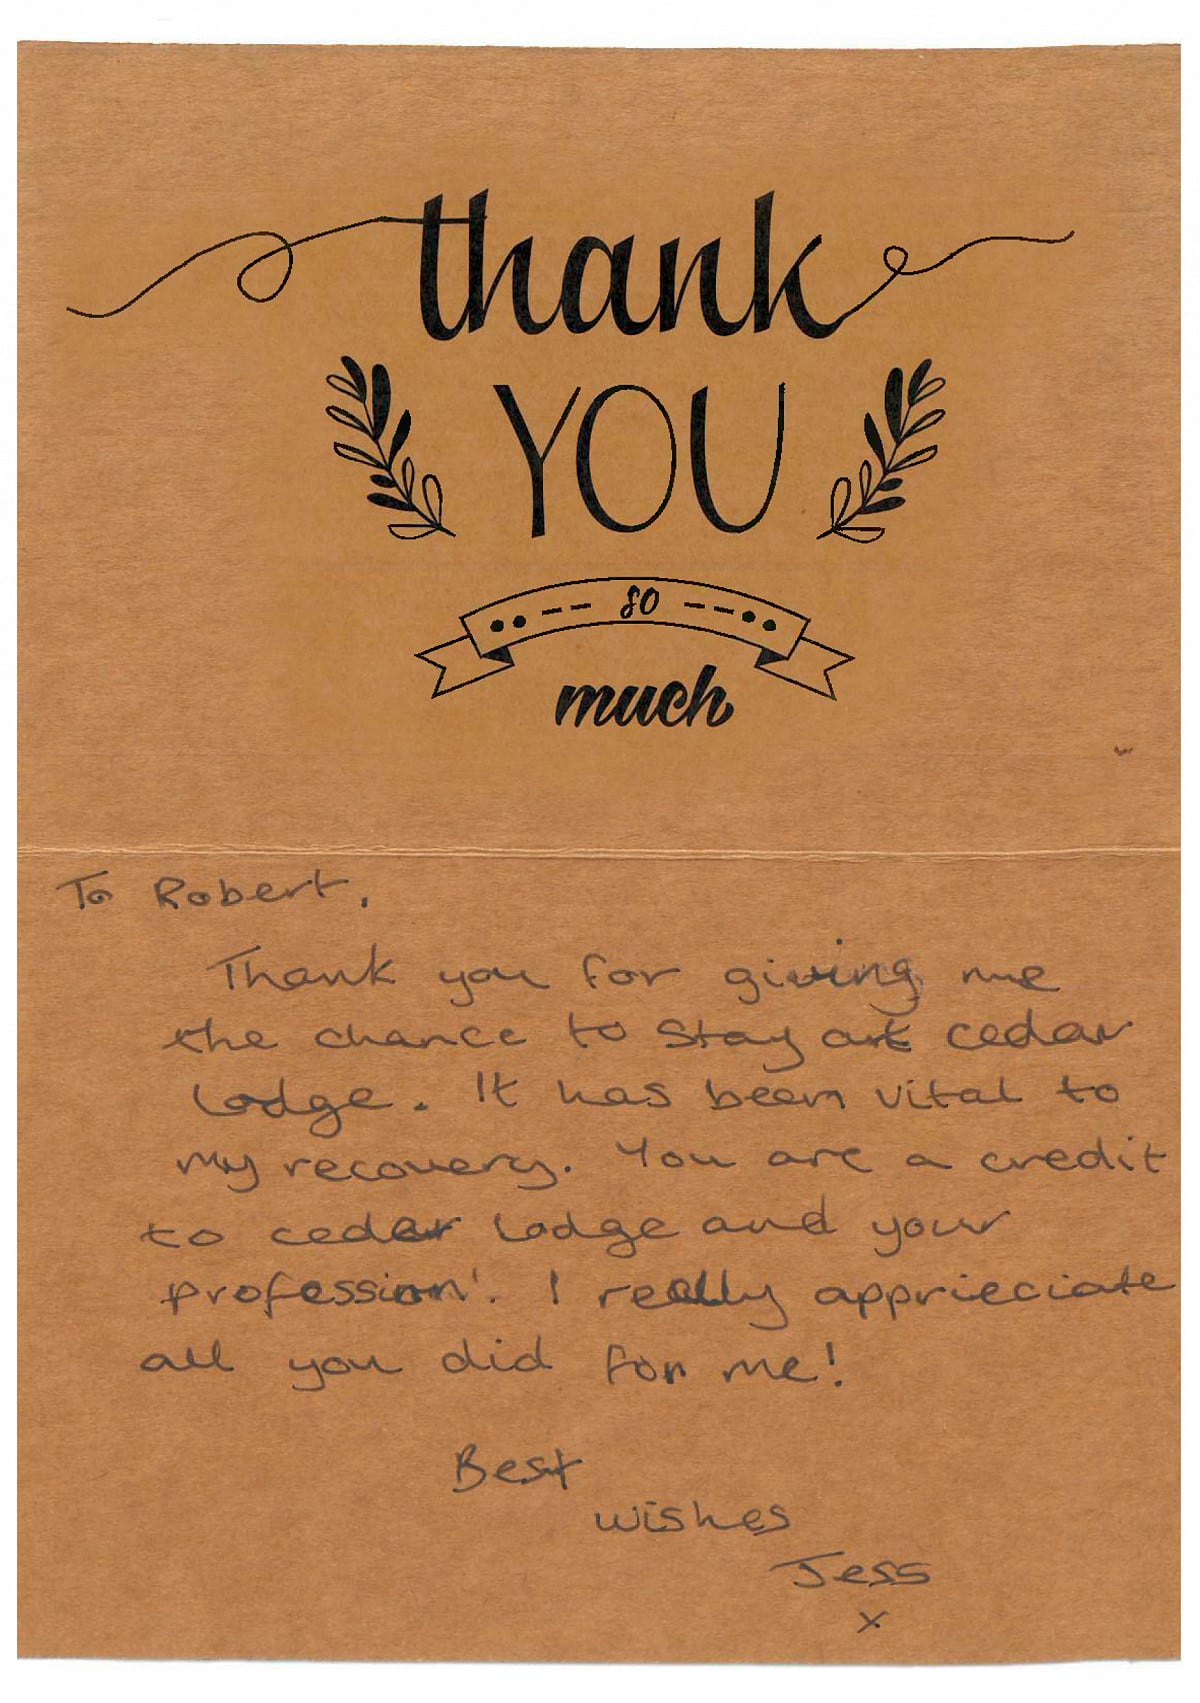 thank
YOU
so
much
To Robert,
Thank you for giving me
the chance to stay at cedar
Lodge. It has been vital to
my recovery. You are a credit
to cedar Lodge and your
profession'. I really apprieciate
all you did for me!
Best
wishes
Jess
x